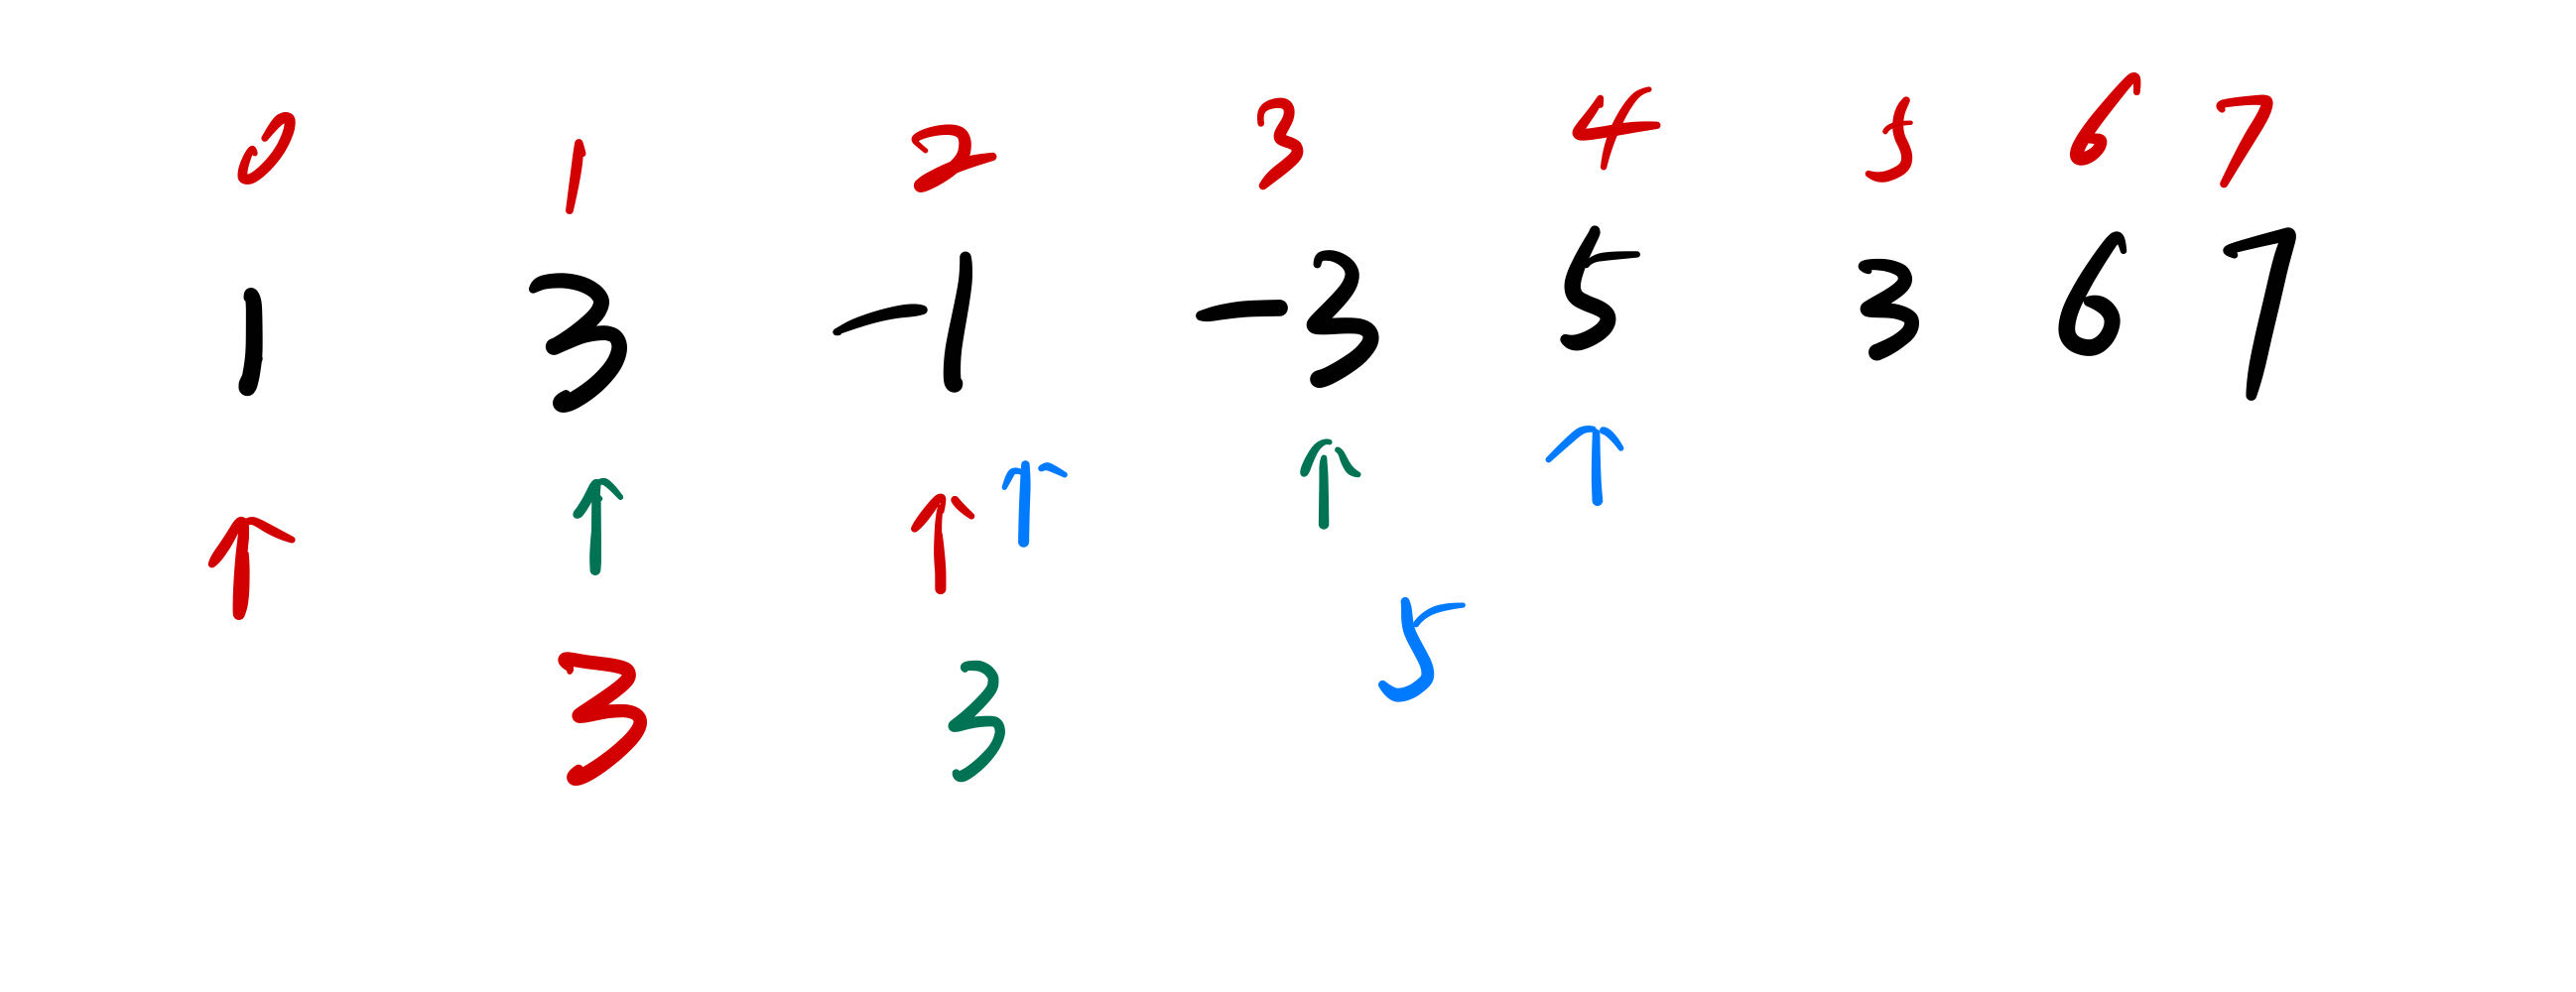 0 1 2 3 4 5 6 7
1 3 -1 -3 5 3 6 7
↑ ↑ ↑ ↑ ↑ ↑
3 3 5